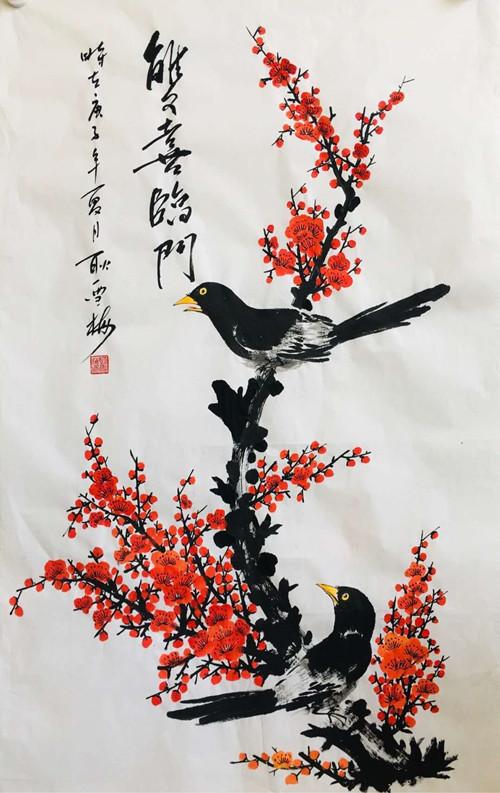 雙喜臨門
時在庚子年夏月耿雪梅